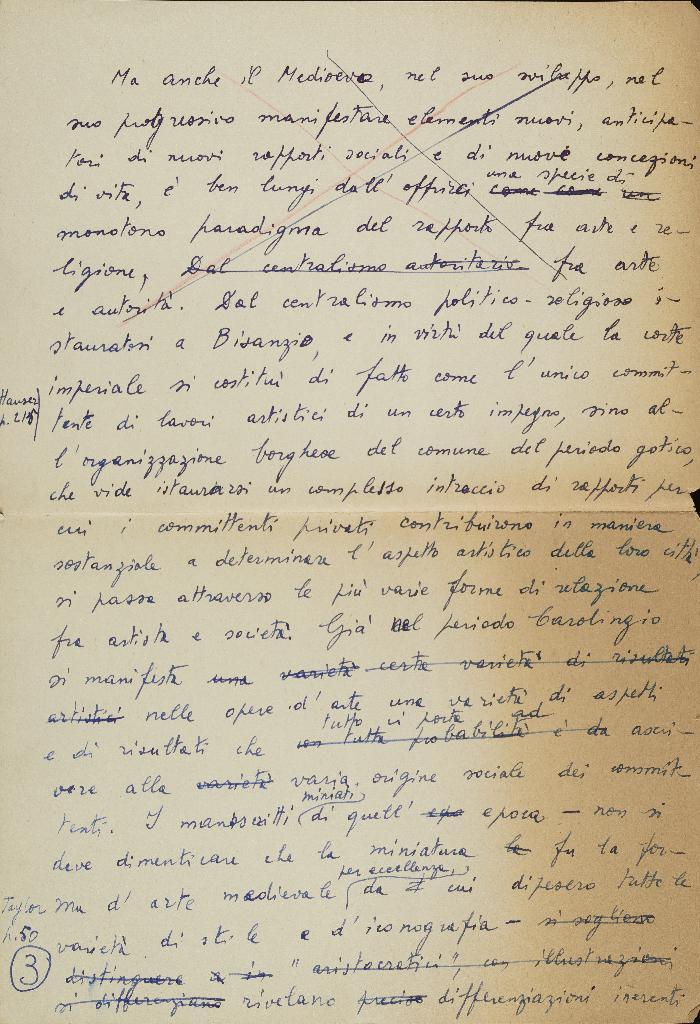 Ma anche il Medioevo, nel suo sviluppo, nel
suo progressivo manifestare elementi nuovi, anticipa-
tori di nuovi rapporti sociali e di nuove concezioni
una specie di
di vita, è ben lungi dall'offrirci come come un
monotono paradigma del rapporto fra arte e re-
ligione, Dal centralismo autoritario fra arte
e autorità. Dal centralismo politico-religioso i-
stauratosi a Bisanzio, e in virtù del quale la corte
Hauser
p. 215
imperiale si costituì di fatto come l'unico commit-
tente di lavori artistici di un certo impegno, sino al-
l'organizzazione borghese del comune del periodo gotico,
che vide istaurarsi un complesso intreccio di rapporti per
cui i committenti privati contribuirono in maniera
sostanziale a determinare l'aspetto artistico della loro città,
si passa attraverso le più varie forme di relazione
fra artista e società. Già nel periodo Carolingio
si manifesta una varietà certa varietà di risultati
artistici nelle opere d'arte una varietà di aspetti
tutto ci porta ad
e di risultati che con tutta probabilità è da ascri-
vere alla varietà varia origine sociale dei committ-
miniati
tenti. I manoscritti di quell' epoca — non si
deve dimenticare che la miniatura fu la for-
per eccellenza,
ma d'arte medievale da cui dipesero tutte le
Taylor
p. 50
varietà di stile e d'iconografia — si sogliono
3
distinguere in "aristocratici", con illustrazioni
si differenziano rivelano precise differenziazioni inerenti